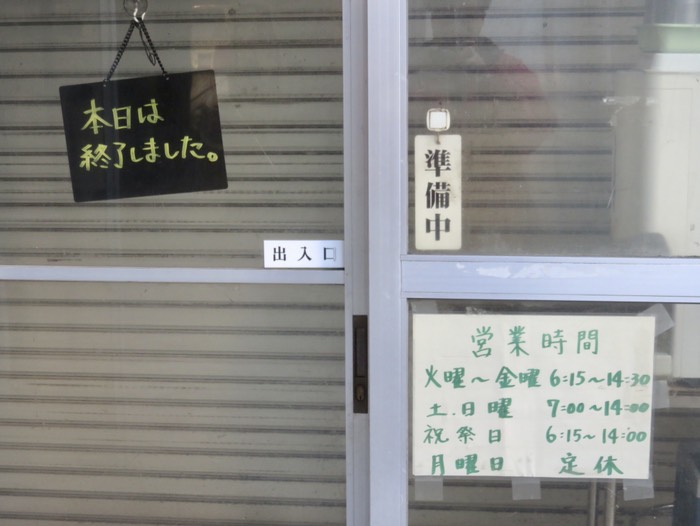 本日は
終了しました。
出入口
準備中
営業時間
火曜～金曜 6:15～14:30
土.日曜 7:00～14:00
祝祭日 6:15～14:00
月曜日 定休